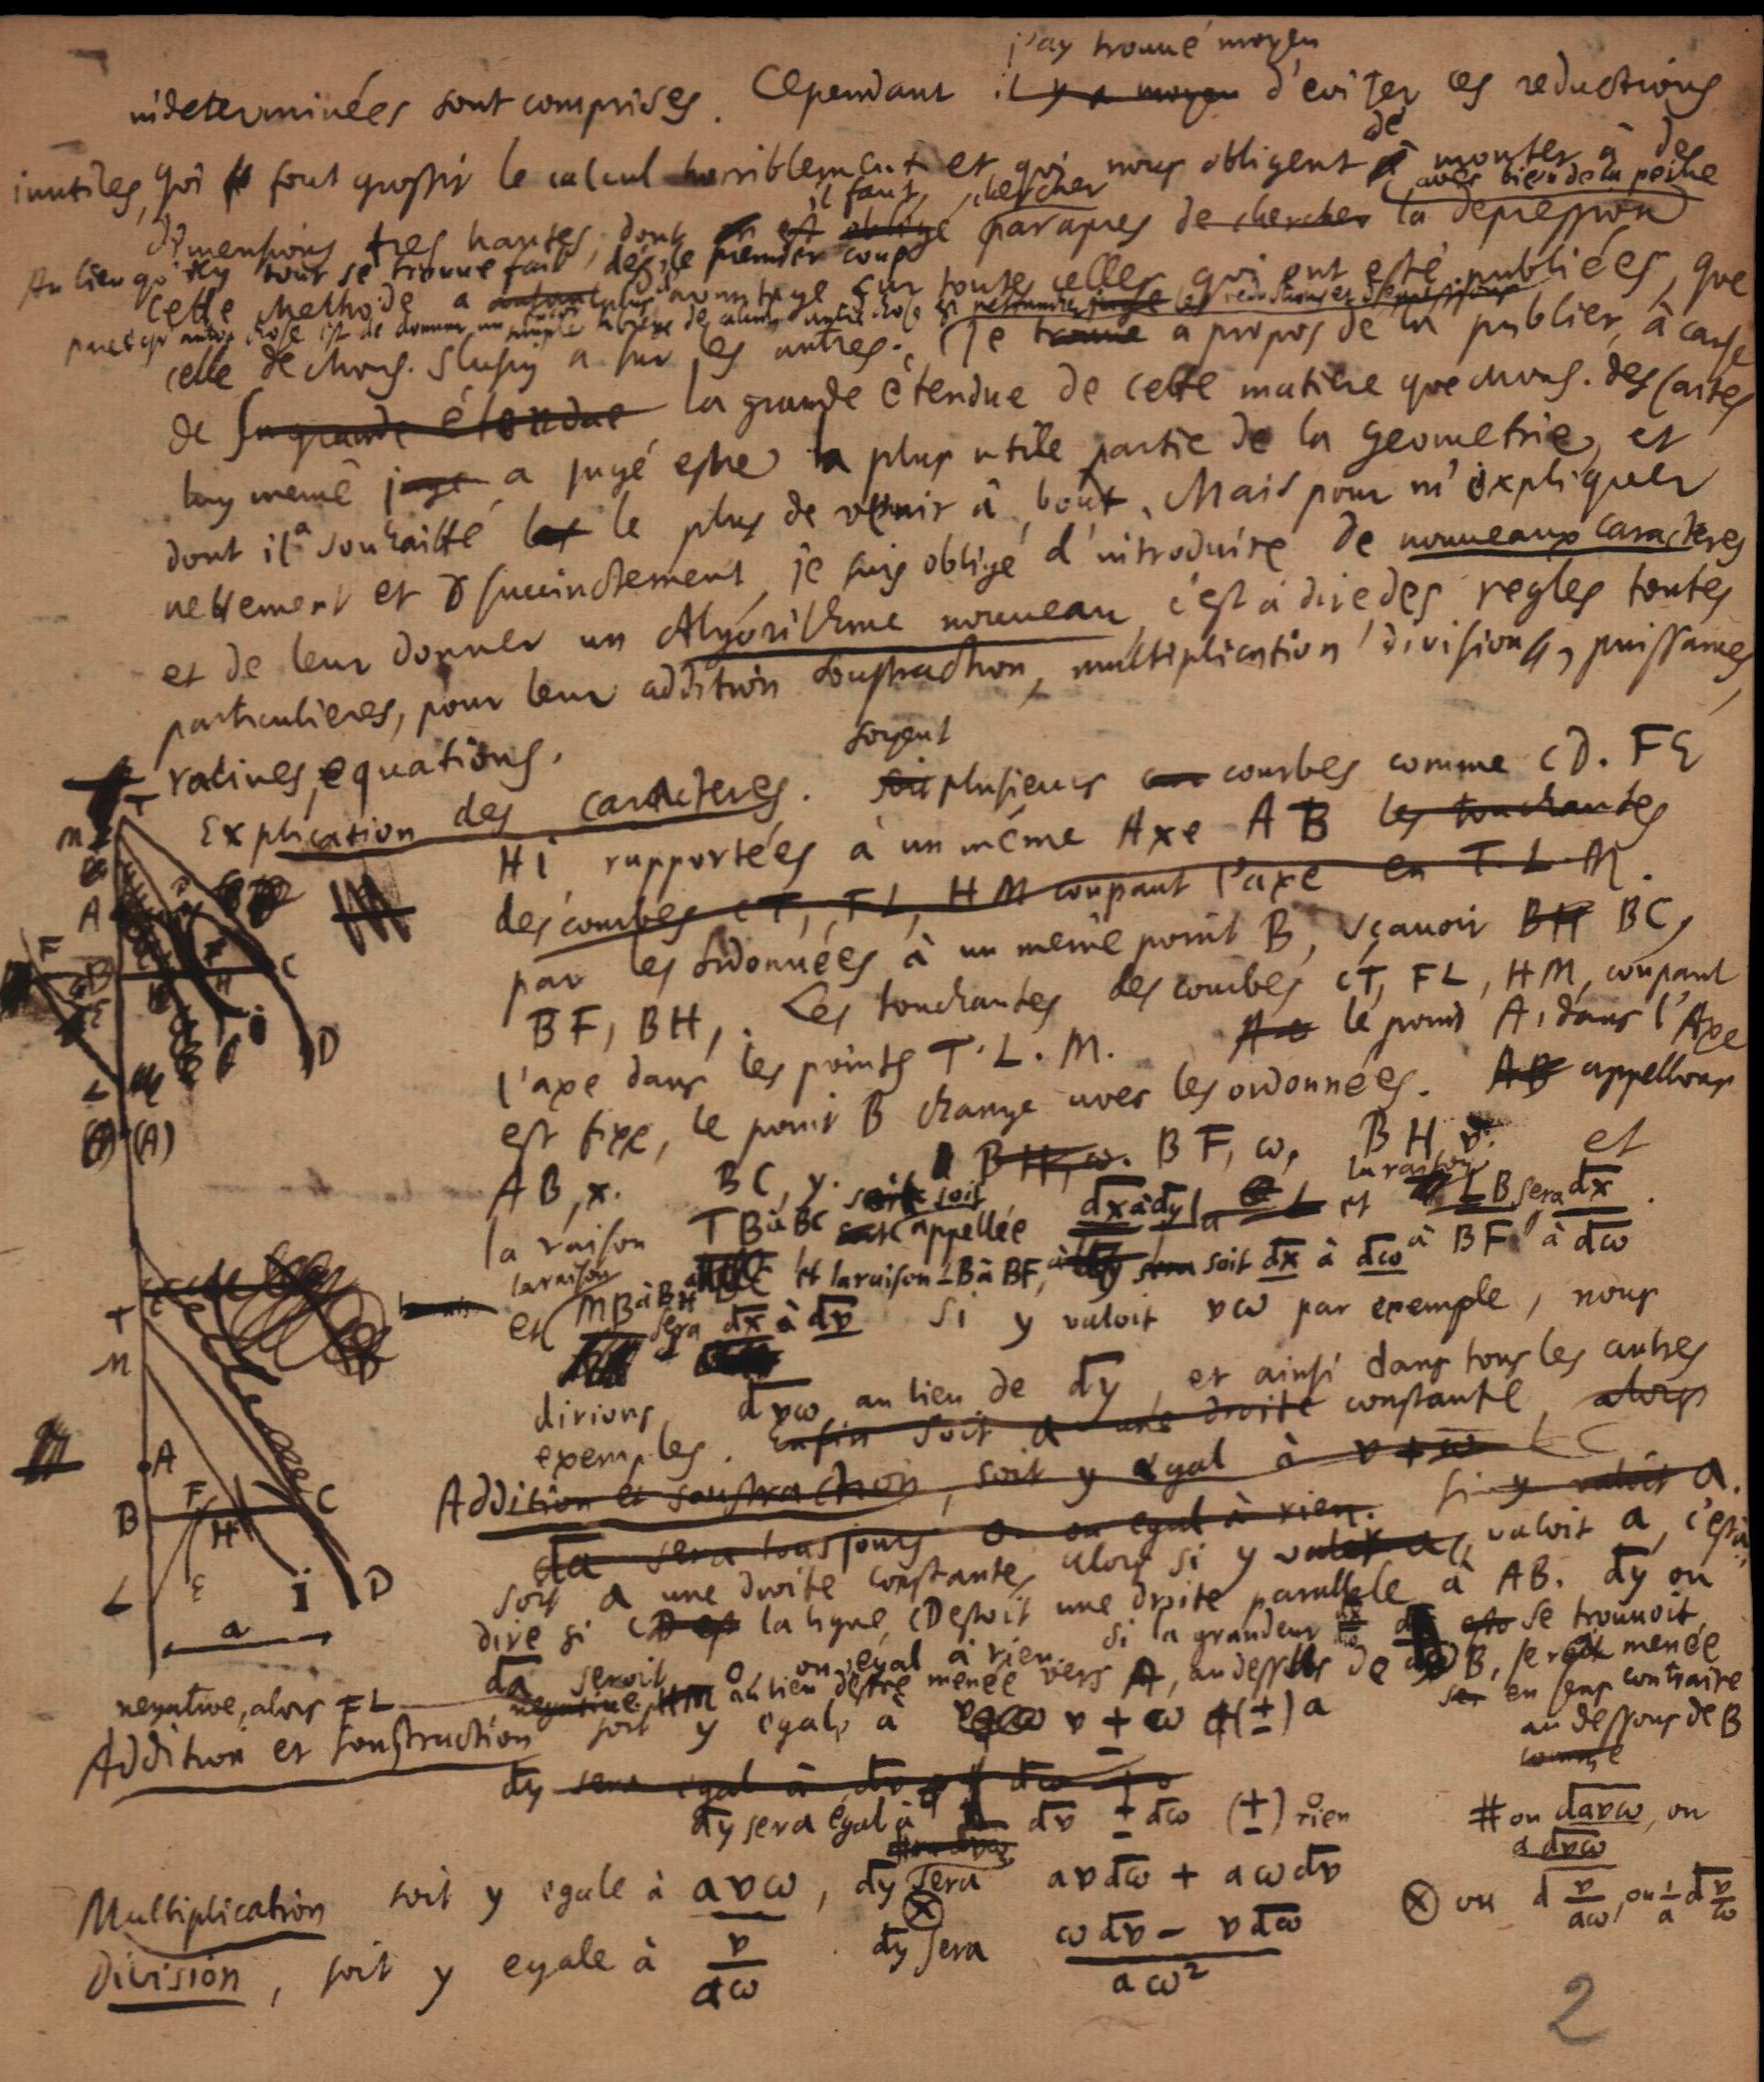 j'ay trouué moyen
indeterminées sont comprises. Cependant il y a moyen d'eviter ces reductions
de
inutiles, qui font grossir le calcul horriblement et qui nous obligent à monter à des
il faut chercher avec bien de la peine
dimensions tres hautes, dont on est obligé par apres de chercher la depression
Au lieu qu'icy tout se trouue fait dés le premier coup
Cette Methode a autant plus d'avantage sur toutes celles qui ont esté publiées, que
par ce qu'autre chose est de donner un simple abregé de calcul autre chose
celle de Mons. Slusius a sur les autres. Je trouue a propos de la publier, à cause
de sa grande étendue la grande étendue de cette matiere que Mons. des Cartes
luy même juge a jugé estre la plus utile partie de la Geometrie, et
dont il a souhaitté les le plus de venir à bout. Mais pour m'expliquer
nettement et succinctement, je suis obligé d'introduire de nouveaux caracteres
et de leur donner un Algorithme nouveau, c'est à dire des regles toutes
particulieres, pour leur addition soustraction, multiplication, division, puissances,
racines, equations.
soyent
Explication des caracteres. soit plusieurs courbes comme CD. FE
HI rapportées à un même Axe AB les touchantes
des courbes CT, FL, HM coupant l'axe en T. L. M.
par les ordonnées à un même point B, sçavoir BH BC,
BF, BH,. Les touchantes des courbes CT, FL, HM, coupant
l'axe dans les points T. L. M. le point A, dans l'Axe
est fixe, le point B change avec les ordonnées. AB appellons
AB, x. BC, y. BH, ω. BF, ω, BH v. et
la raison TB à BC soit appellée dx à dy la raison et LB sera dx
la raison et la raison LB à BF, soit dx à dω à BF à dω
et MB à BH sera dx à dv Si y valoit vω par exemple, nous
dirions dvω au lieu de dy, et ainsi dans tous les autres
exemples. Enfin soit a une droite constante alors
Addition et soustraction, soit y egal à v + ω
da sera tousjours 0 ou egal à rien. Si y valoit a.
soit a une droite constante, alors si y valoit a, c'est à
dire si CD est la ligne CD estoit une droite parallele à AB. dy ou
da seroit 0 ou egal à rien. Si la grandeur est se trouuoit
negative, alors FL au lieu d'estre menée vers A, au dessus de B, seroit menée
en sens contraire
au dessous de B
comme
Addition et soustraction soit y egal à v ± ω (±) a
dy sera egal à dv ± dω ± 0
dy sera égal à dv ± dω (±) 0 rien
# ou davω, ou
a dvω
Multiplication soit y egale à avω, dy sera avdω + aωdv
⊗ ou d v/aω, ou 1/a d v/ω
Division, soit y egale à v/aω. dy sera ωdv − vdω/aω²
T
M
A
F
B
H
C
E
D
L
(A)
T
M
A
B
F
H
C
L
E
I
D
a
2